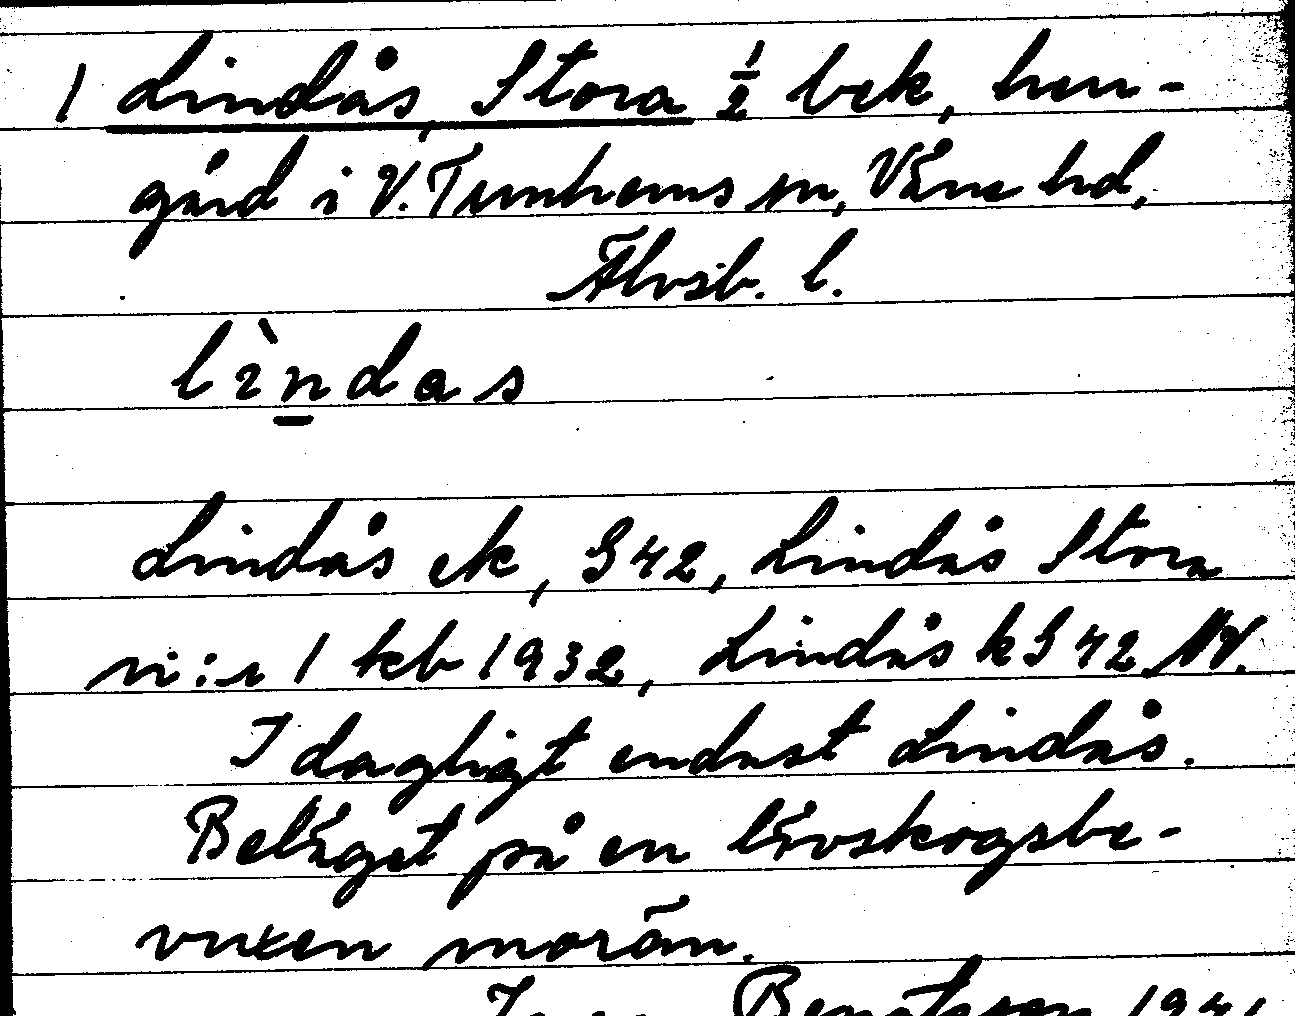 1 Lindås, Stora 1/2 bek, hem-
gård i V. Tunhems sn, Väne hd,
Älvsb. l.
lìndas
Lindås ek, G42, Lindås Stora
ni:r 1 kcb 1932, Lindås k G42 NV.
I dagligt endast Lindås.
Beläget på en lövskogsbe-
vuxen morän.
Bengtsson